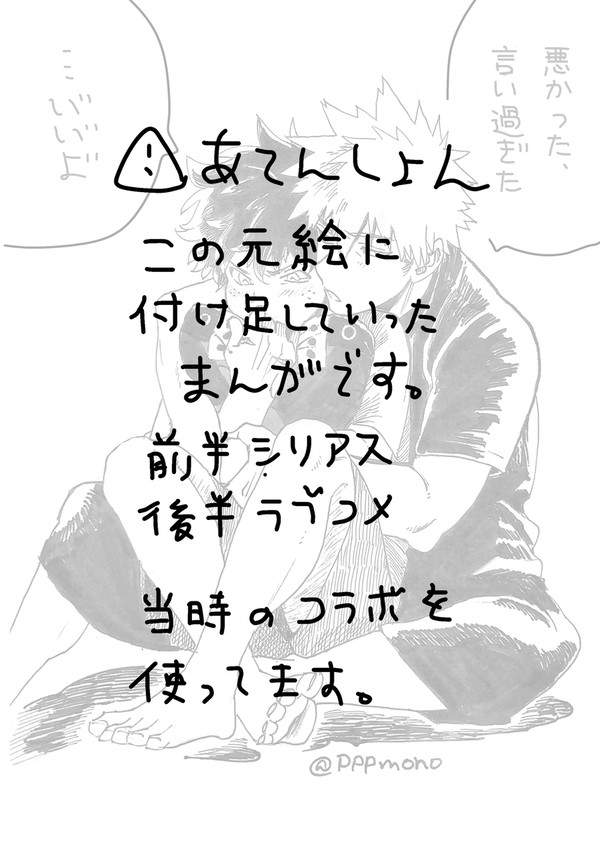 悪かった、
言い過ぎた
いいよ
⚠あてんしょん
この元絵に
付け足していった
まんがです。
前半シリアス
後半ラブコメ
当時のコラボを
使ってます。
@pppmono